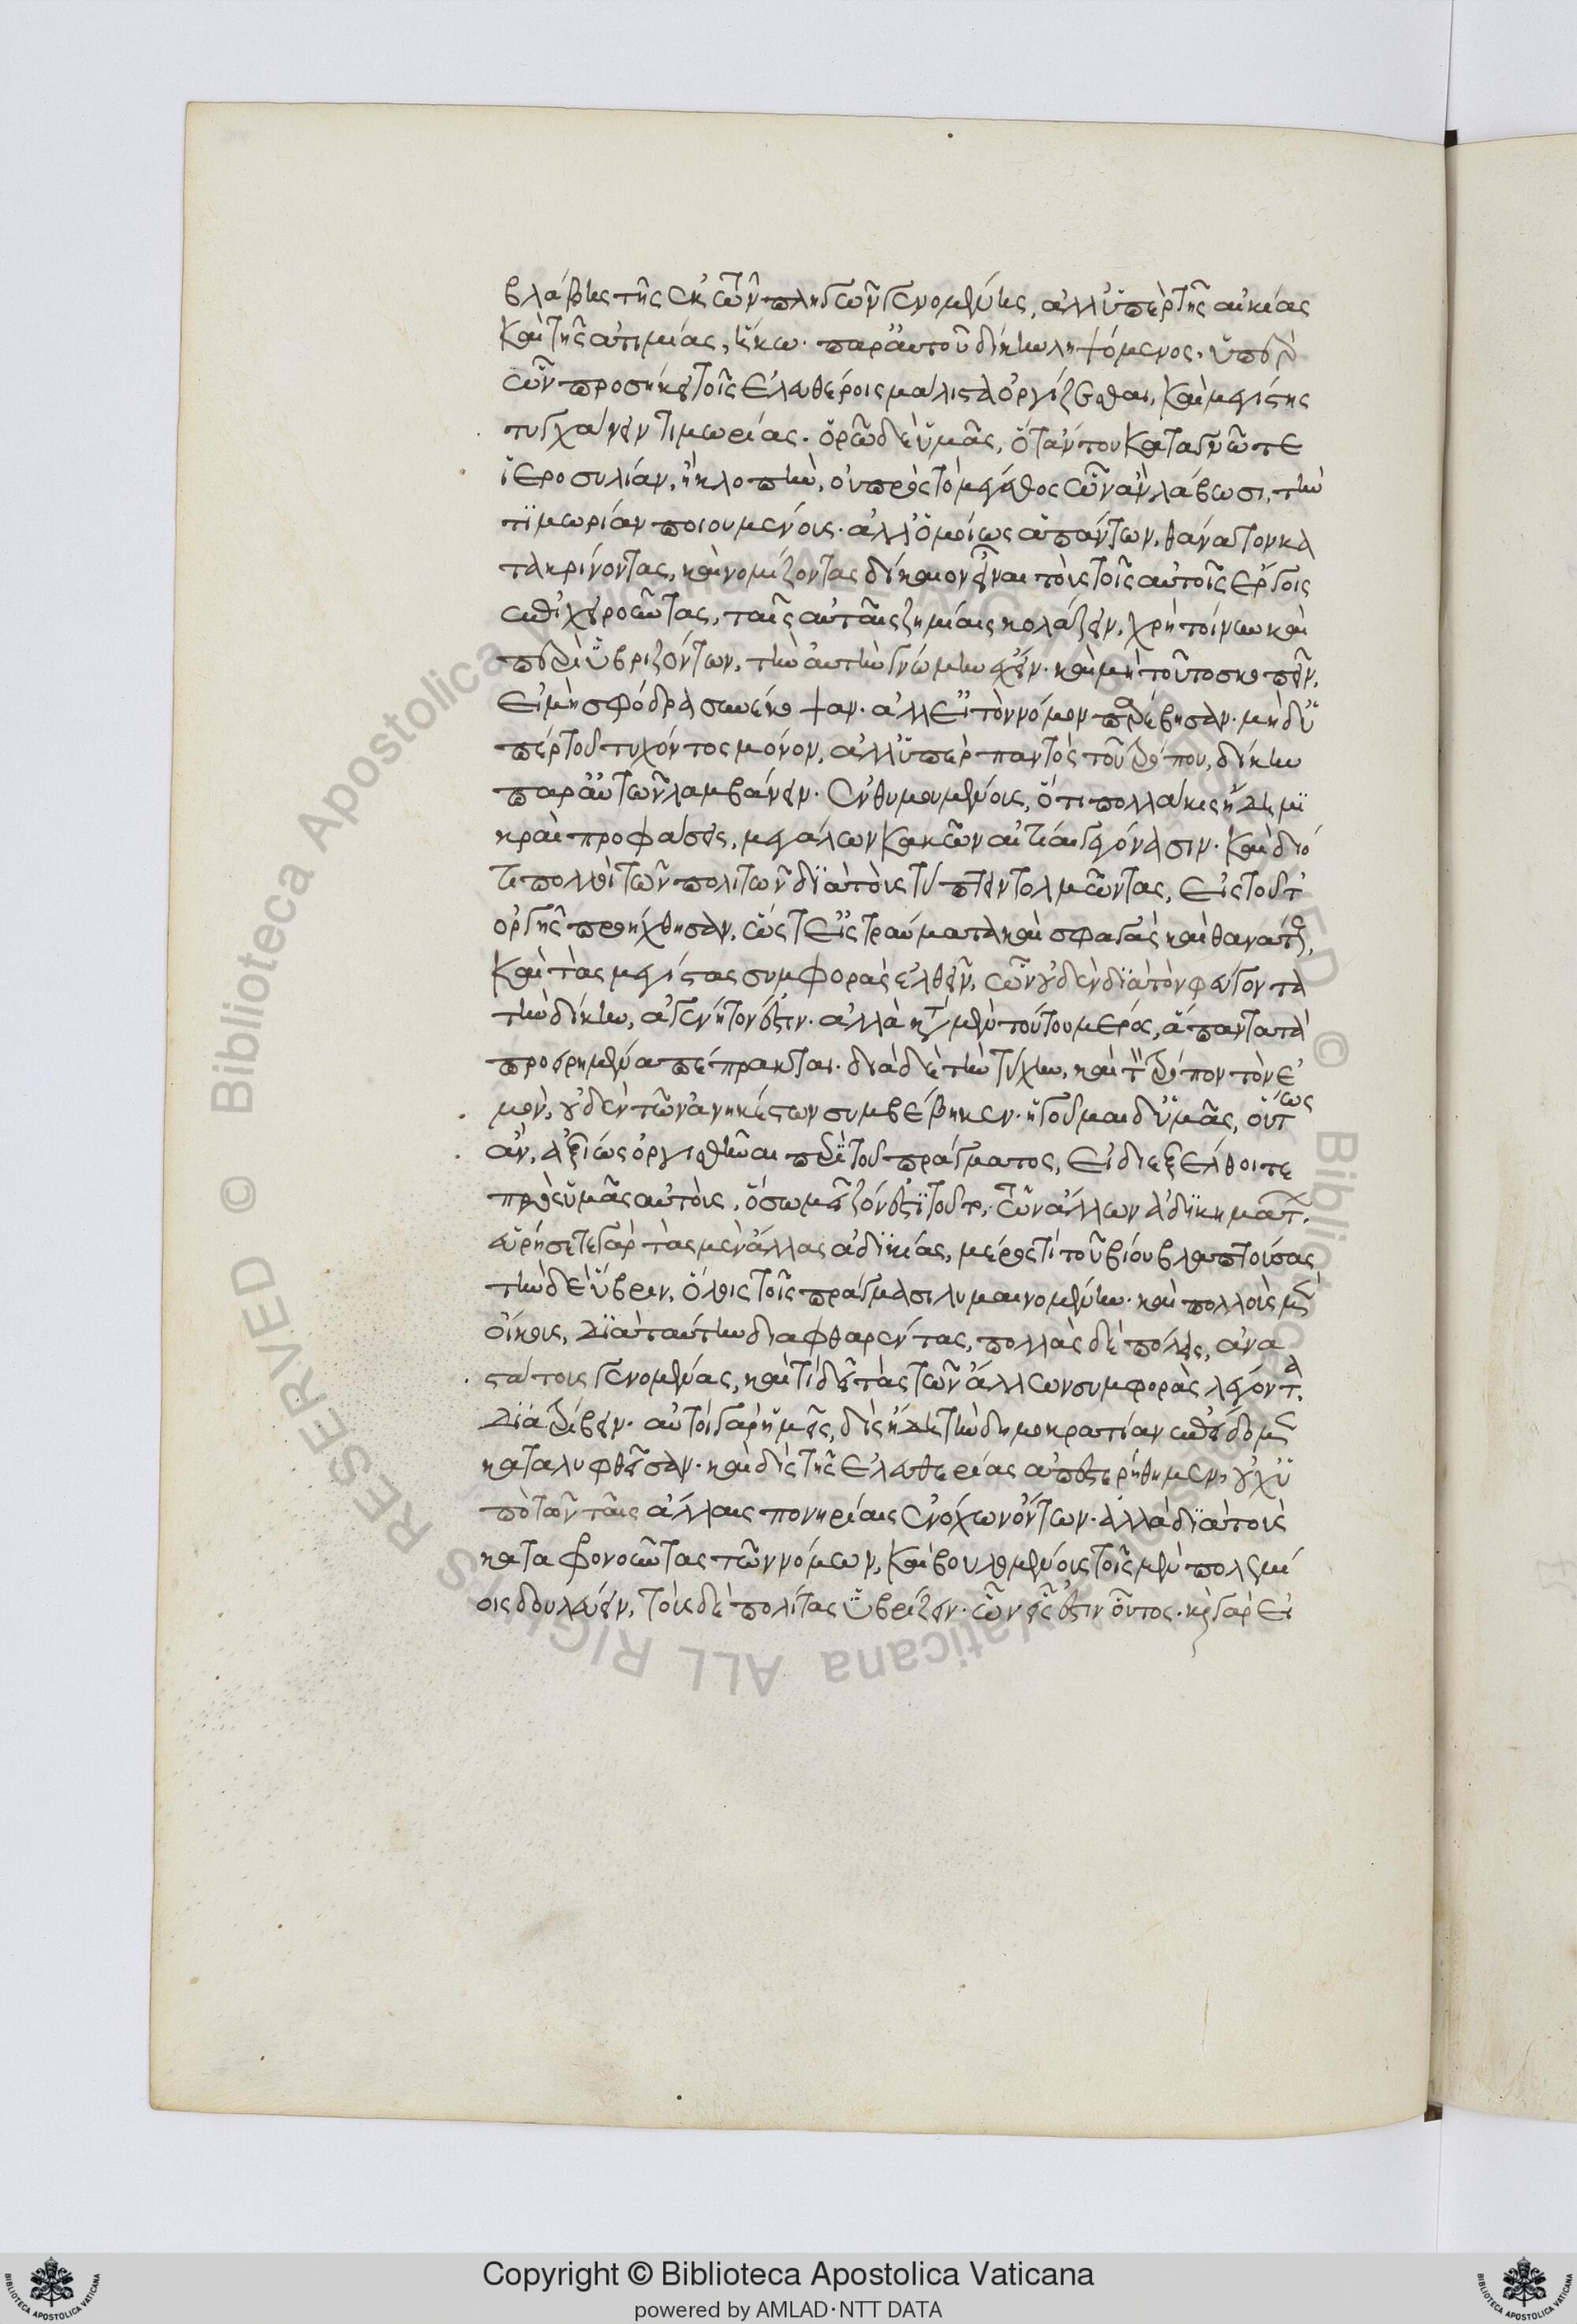 βλάβης τῆς ἐκ τῶν πληγῶν γενομένης, ἀλλ' ὑπὲρ τῆς αἰκίας
καὶ τῆς ἀτιμίας, ἥκω παρ' αὐτοῦ δίκην ληψόμενος. ὑπὲρ
ὧν προσήκει τοῖς ἐλευθέροις μάλιστα ὀργίζεσθαι, καὶ μεγίστης
τυγχάνειν τιμωρίας. ὁρῶ δὲ ὑμᾶς, ὅταν του καταγνῶτε
ἱεροσυλίαν, ἢ κλοπὴν, οὐ πρὸς τὸ μέγεθος ὧν ἂν λάβωσι, τὴν
τιμωρίαν ποιουμένους. ἀλλ' ὁμοίως ἁπάντων, θάνατον κα
τακρίνοντας, καὶ νομίζοντας δίκαιον εἶναι τοὺς τοῖς αὐτοῖς ἔργοις
ἐπιχειροῦντας, ταῖς αὐταῖς ζημίαις κολάζειν. χρὴ τοίνυν καὶ
περὶ ὑβριζόντων, τὴν αὐτὴν γνώμην ἔχειν. καὶ μὴ τοῦτο σκοπεῖν,
εἰ μὴ σφόδρα συνέκοψαν. ἀλλ' εἰ τὸν νόμον παρέβησαν. μηδ' ὑ
πὲρ τοῦ τυχόντος μόνον, ἀλλ' ὑπὲρ παντὸς τοῦ τρόπου, δίκην
παρ' αὐτῶν λαμβάνειν. ἐνθυμουμένους, ὅτι πολλάκις ἤδη μι
κραὶ προφάσεις, μεγάλων κακῶν αἴτιαι γεγόνασιν. καὶ διό
τι πολλοὶ τῶν πολιτῶν διὰ τοὺς τύπτειν τολμῶντας, εἰς τοῦτ'
ὀργῆς προήχθησαν, ὥστ' εἰς τραύματα καὶ σφαγὰς καὶ θανάτους,
καὶ τὰς μεγίστας συμφορὰς ἐλθεῖν, ὧν οὐδὲν διὰ τὸν φεύγοντα
τὴν δίκην, ἀγένητόν ἐστιν. ἀλλὰ κατὰ μὲν τούτου μέρος, ἅπαντα τὰ
προειρημένα πέπρακται. διὰ δὲ τὴν τύχην, καὶ τὸν τρόπον τὸν ἐ
μὸν, οὐδὲν τῶν ἀνηκέστων συμβέβηκεν. ἡγοῦμαι δ' ὑμᾶς, οὕτως
ἂν, ἀξίως ὀργισθῆναι περὶ τοῦ πράγματος, εἰ διεξέλθοιτε
πρὸς ὑμᾶς αὐτοὺς, ὅσῳ μεῖζόν ἐστι τοῦτο, τῶν ἄλλων ἀδικημάτων.
εὑρήσετε γὰρ τὰς μὲν ἄλλας ἀδικίας, μέρος τι τοῦ βίου βλαπτούσας
τὴν δὲ ὕβριν, ὅλοις τοῖς πράγμασι λυμαινομένην. καὶ πολλοὺς μὲν
οἴκους, διὰ ταύτην διαφθαρέντας, πολλὰς δὲ πόλεις, ἀνα
στάτους γενομένας, καὶ τί δεῖ τὰς τῶν ἄλλων συμφορὰς λέγοντα
διατρίβειν. αὐτοὶ γὰρ ἡμεῖς, δὶς ἤδη τὴν δημοκρατίαν ἐπείδομεν
καταλυφθεῖσαν. καὶ δὶς τῆς ἐλευθερίας ἀπεστερήθημεν, οὐχ ὑ
πὸ τῶν ταῖς ἄλλαις πονηρίαις ἐνόχων ὄντων. ἀλλὰ διὰ τοὺς
καταφρονοῦντας τῶν νόμων, καὶ βουλομένους τοῖς μὲν πολεμί
οις δουλεύειν, τοὺς δὲ πολίτας ὑβρίζειν. ὧν εἷς ἐστιν οὗτος. καὶ γὰρ εἰ
Copyright © Biblioteca Apostolica Vaticana
powered by AMLAD·NTT DATA